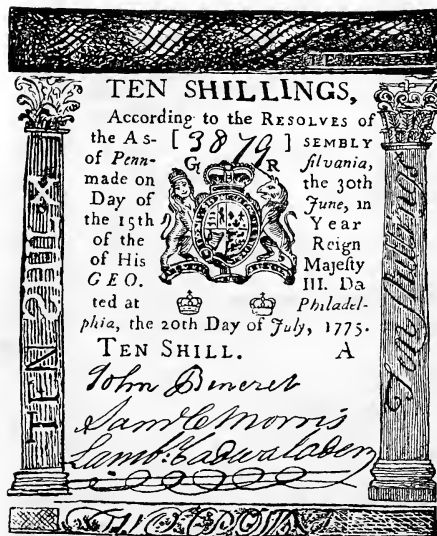 TEN SHILLINGS,
According to the RESOLVES of
the As- [ 3879 ] SEMBLY
of Penn- G R ſilvania,
made on the 30th
Day of June, in
the 15th Year
of the Reign
of His Majeſty
GEO. III. Da
ted at Philadel-
phia, the 20th Day of July, 1775.
TEN SHILL. A
John
Saml C Morris
Lamb. Cadwalader
TEN SHILL
Ten Shillings